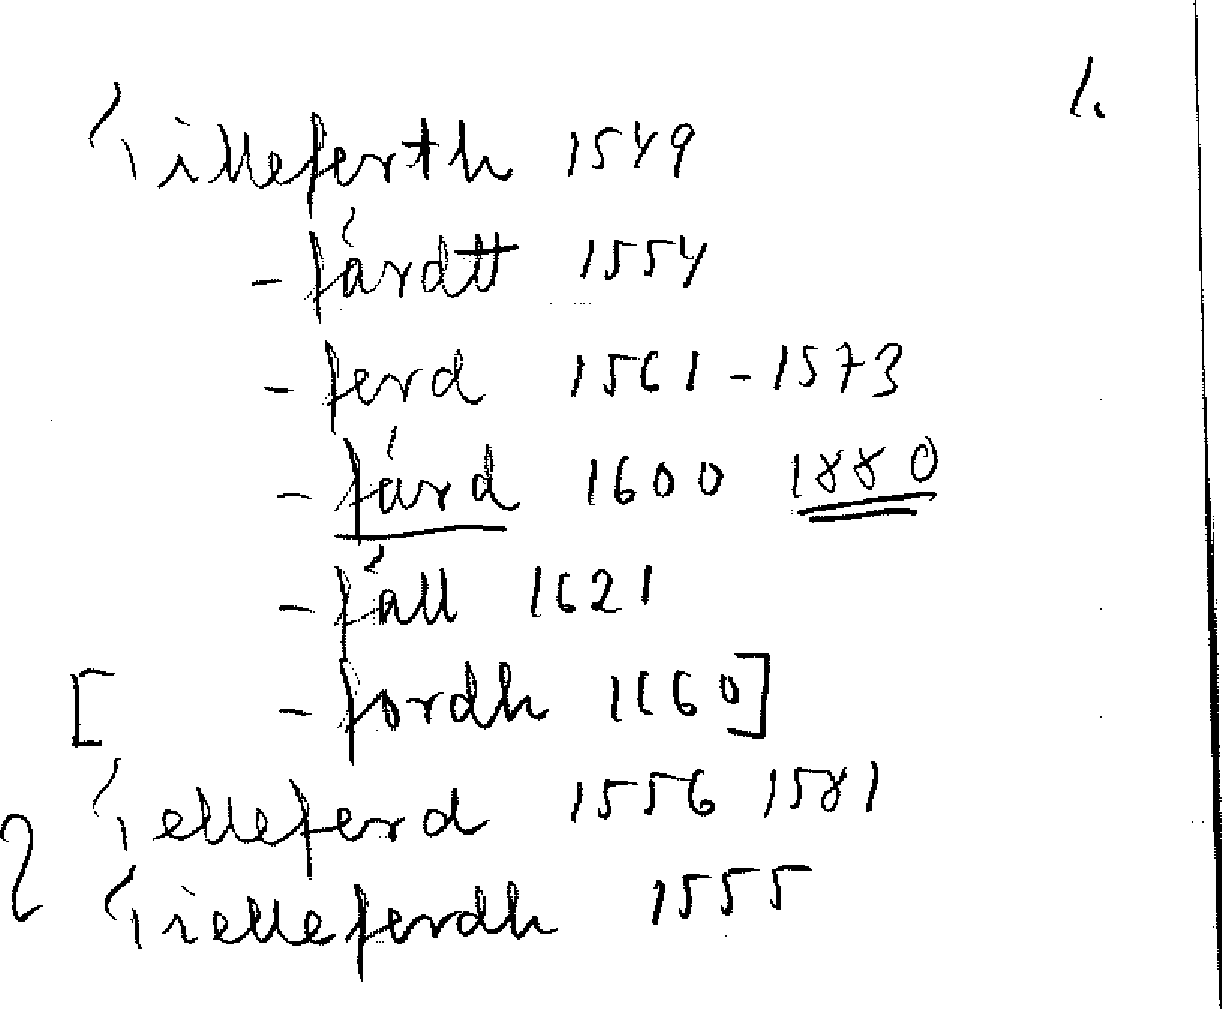 1.
Gilleferth 1549
- färdtt 1554
- ferd 1561-1573
- färd 1600 1880
- fäll 1621
[ - fordh 1660]
Gelleferd 1556 1581
Gielleferdh 1555